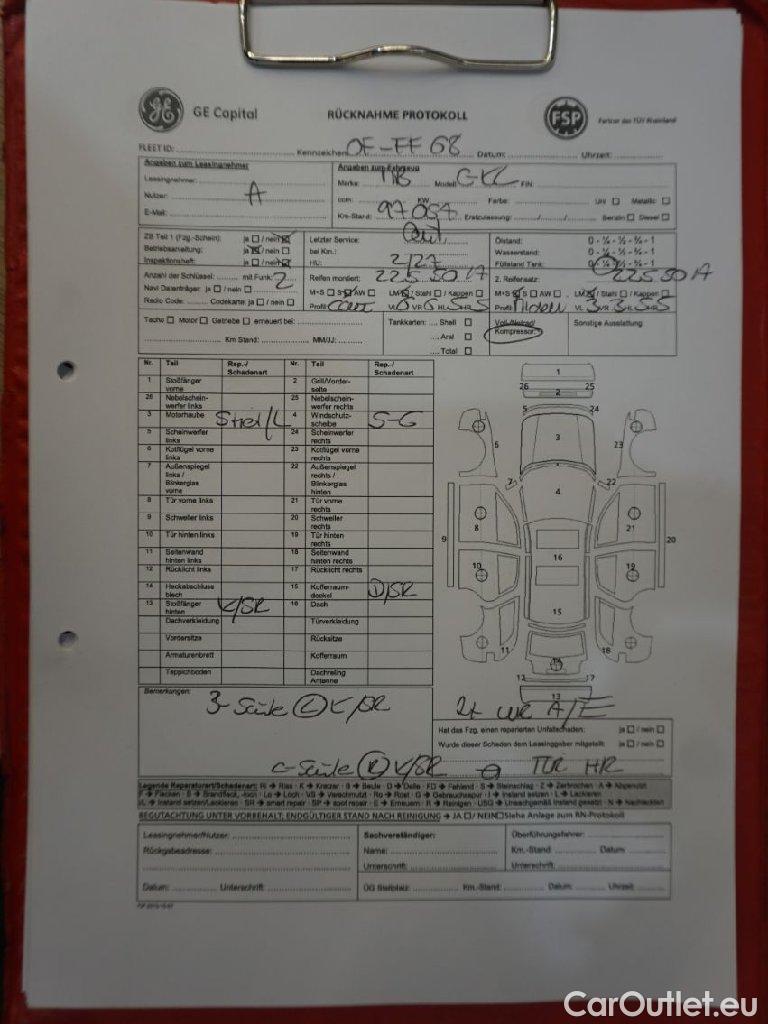 GE Capital RÜCKNAHME PROTOKOLL FSP Partner des TÜV Rheinland
FLEET ID: Kennzeichen: OF-FF 68 Datum: Uhrzeit:
Angaben zum Leasingnehmer Angaben zum Fahrzeug
Leasingnehmer: Marke: MB Modell: FIN:
Nutzer: A ccm: KW: Farbe: Uni Metallic
E-Mail: Km-Stand: 97 Erstzulassung: Benzin Diesel
ZB Teil 1 (Fzg.-Schein): ja / nein Letzter Service: Ölstand: 0 - ¼ - ½ - ¾ - 1
Betriebsanleitung: ja / nein bei Km.: Wasserstand: 0 - ¼ - ½ - ¾ - 1
Inspektionsheft: ja / nein HU: 2/21 Füllstand Tank: 0 - ¼ - ½ - ¾ - 1
Anzahl der Schlüssel: mit Funk: 2 Reifen montiert: 225 50 17 2. Reifensatz: 225 50 17
Navi Datenträger: ja / nein M+S S AW LM / Stahl / Kappen M+S S AW LM / Stahl / Kappen
Radio Code: Codekarte: ja / nein Profil VL 6 VR 6 HL 5 HR 5 Profil VL 3 VR 3 HL 5 HR 5
Tacho Motor Getriebe erneuert bei: Tankkarten: Shell Voll-/Notrad/ Sonstige Ausstattung
Kompressor:
Aral
Km Stand: MM/JJ: Total
Nr. Teil Rep.-/ Schadenart Nr. Teil Rep.-/ Schadenart
1 Stoßfänger vorne 2 Grill/Vorderseite
26 Nebelscheinwerfer links 25 Nebelscheinwerfer rechts
3 Motorhaube 4 Windschutzscheibe S-G
5 Scheinwerfer links 24 Scheinwerfer rechts
6 Kotflügel vorne links 23 Kotflügel vorne rechts
7 Außenspiegel links / Blinkerglas vorne 22 Außenspiegel rechts / Blinkerglas hinten
8 Tür vorne links 21 Tür vorne rechts
9 Schweller links 20 Schweller rechts
10 Tür hinten links 19 Tür hinten rechts
11 Seitenwand hinten links 18 Seitenwand hinten rechts
12 Rücklicht links 17 Rücklicht rechts
14 Heckabschlussblech 15 Kofferraumdeckel D/SR
13 Stoßfänger hinten K/SR 16 Dach
Dachverkleidung Türverkleidung
Vordersitze Rücksitze
Armaturenbrett Kofferraum
Teppichboden Dachreling Antenne
1
26 25
2
5 24
3
6 23
7 22
4
8 21
9 20
16
10 19
15
11 18
14
12 17
13
Bemerkungen: B-Säule L K/SR 2x WR A/E
Hat das Fzg. einen reparierten Unfallschaden: ja / nein
Wurde dieser Schaden dem Leasinggeber mitgeteilt: ja / nein
C-Säule R K/SR TÜR HR
Legende Reparaturart/Schadenart: Ri → Riss · K → Kratzer · B → Beule · D → Delle · FD → Fehlend · S → Steinschlag · Z → Zerbrochen · A → Abgenutzt
F → Flecken · B → Brandfleck, -loch · Lo → Loch · VS → Verschmutzt · Ro → Rost · G → Gebrauchsspur · I → Instand setzen · L → Lackieren
I/L → Instand setzen/Lackieren · SR → smart repair · SP → spot repair · E → Erneuern · R → Reinigen · USG → Unsachgemäß instand gesetzt · N → Nachlackiert
BEGUTACHTUNG UNTER VORBEHALT: ENDGÜLTIGER STAND NACH REINIGUNG → JA / NEIN Siehe Anlage zum RN-Protokoll
Leasingnehmer/Nutzer: Sachverständiger: Überführungsfahrer:
Rückgabeadresse: Name: Km.-Stand Datum
Unterschrift: Unterschrift:
Datum: Unterschrift: ÜG Stellplatz: Km.-Stand: Datum: Uhrzeit:
CarOutlet.eu